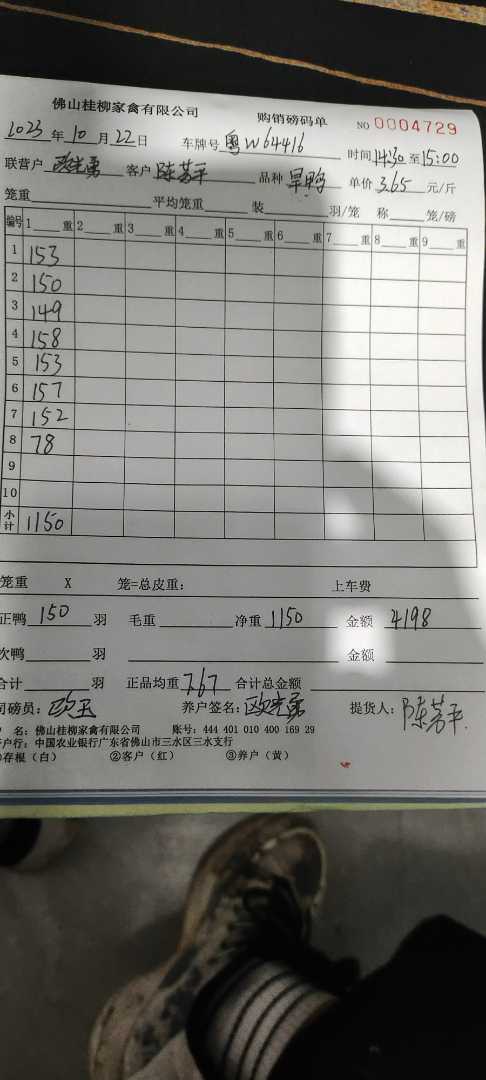 佛山桂柳家禽有限公司 购销磅码单 NO 0004729
2023年10月22日 车牌号 粤W64416 时间 14:30 至 15:00
联营户 客户 陈芳平 品种 旱鸭 单价 3.65 元/斤
笼重 平均笼重 装 羽/笼 称 笼/磅
编号 1 重 2 重 3 重 4 重 5 重 6 重 7 重 8 重 9 重
1 153
2 150
3 149
4 158
5 153
6 157
7 152
8 78
9
10
小计 1150
笼重 X 笼=总皮重： 上车费
正鸭 150 羽 毛重 净重 1150 金额 4198
次鸭 羽 金额
合计 羽 正品均重 7.67 合计总金额
司磅员： 养户签名： 提货人：陈芳平
名：佛山桂柳家禽有限公司 账号：444 401 010 400 169 29
户行：中国农业银行广东省佛山市三水区三水支行
存根（白） ②客户（红） ③养户（黄）